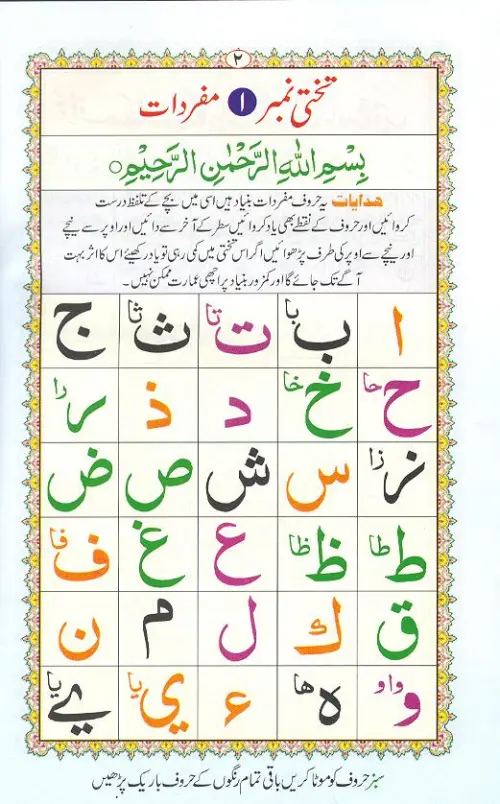 ٢
تختی نمبر ١ مفردات
بِسْمِ اللهِ الرَّحْمٰنِ الرَّحِیْمِ ○
ھدایات یہ حروف مفردات بنیاد ہیں اسی میں بچے کے تلفظ درست
کروائیں اور حروف کے نقطے بھی یاد کروائیں سطر کے آخر سے دائیں اور اوپر سے نیچے
اور نیچے سے اوپر کی طرف پڑھوائیں اگر اس تختی میں کمی رہی تو یاد رکھیئے اس کا اثر بہت
آگے تک جائے گا اور کمزور بنیاد پر اچھی عمارت ممکن نہیں۔
ا ب با ت تا ث ثا ج
ح حا خ خا د ذ ر را
ز زا س ش ص ض
ط طا ظ ظا ع غ ف فا
ق ك ل م ن
و واو ہ ھا ء ي یا ے یا
سبز حروف کو موٹا کریں باقی تمام رنگوں کے حروف باریک پڑھیں